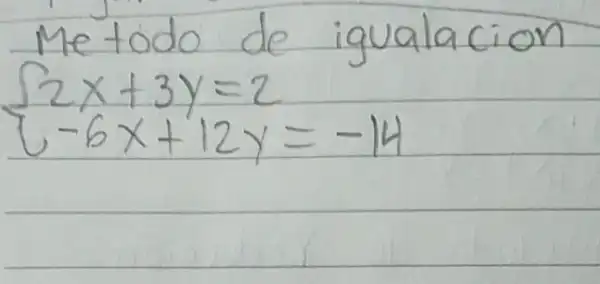 Metodo de igualacion
2x+3y=2
-6x+12y=-14